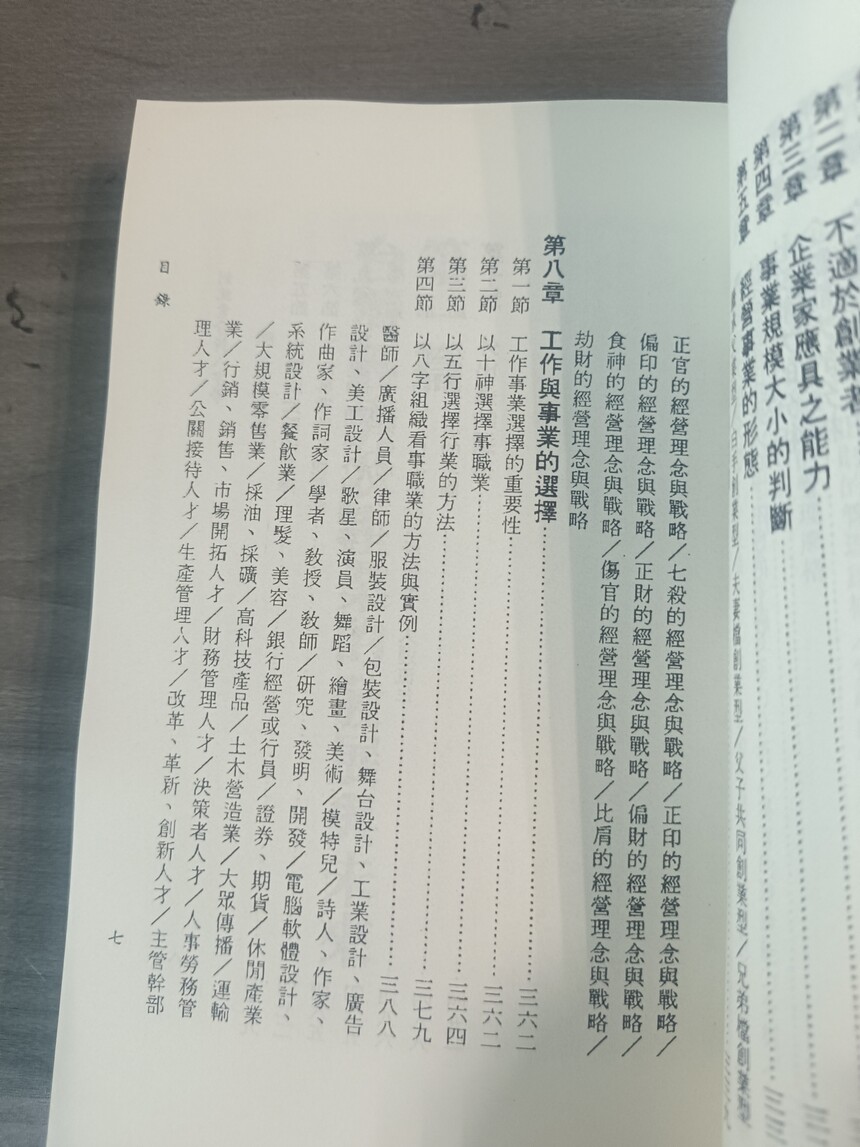 第二章　不適於創業者
第三章　企業家應具之能力……
第四章　事業規模大小的判斷……
第五章　經營事業的形態……
白手創業型／夫妻檔創業型／父子共同創業型／兄弟檔創業型
正官的經營理念與戰略／七殺的經營理念與戰略／正印的經營理念與戰略／
偏印的經營理念與戰略／正財的經營理念與戰略／偏財的經營理念與戰略／
食神的經營理念與戰略／傷官的經營理念與戰略／比肩的經營理念與戰略／
劫財的經營理念與戰略
第八章　工作與事業的選擇……三六二
第一節　工作事業選擇的重要性……三六二
第二節　以十神選擇事職業……三六四
第三節　以五行選擇行業的方法……三七九
第四節　以八字組織看事職業的方法與實例……三八八
醫師／廣播人員／律師／服裝設計／包裝設計、舞台設計、工業設計、廣告
設計、美工設計／歌星、演員、舞蹈、繪畫、美術／模特兒／詩人、作家、
作曲家、作詞家／學者、教授、教師／研究、發明、開發／電腦軟體設計、
系統設計／餐飲業／理髮、美容／銀行經營或行員／證券、期貨／休閒產業
／大規模零售業／採油、採礦／高科技產品／土木營造業／大眾傳播／運輸
業／行銷、銷售、市場開拓人才／財務管理人才／決策者人才／人事勞務管
理人才／公關接待人才／生產管理人才／改革、革新、創新人才／主管幹部
目錄
七